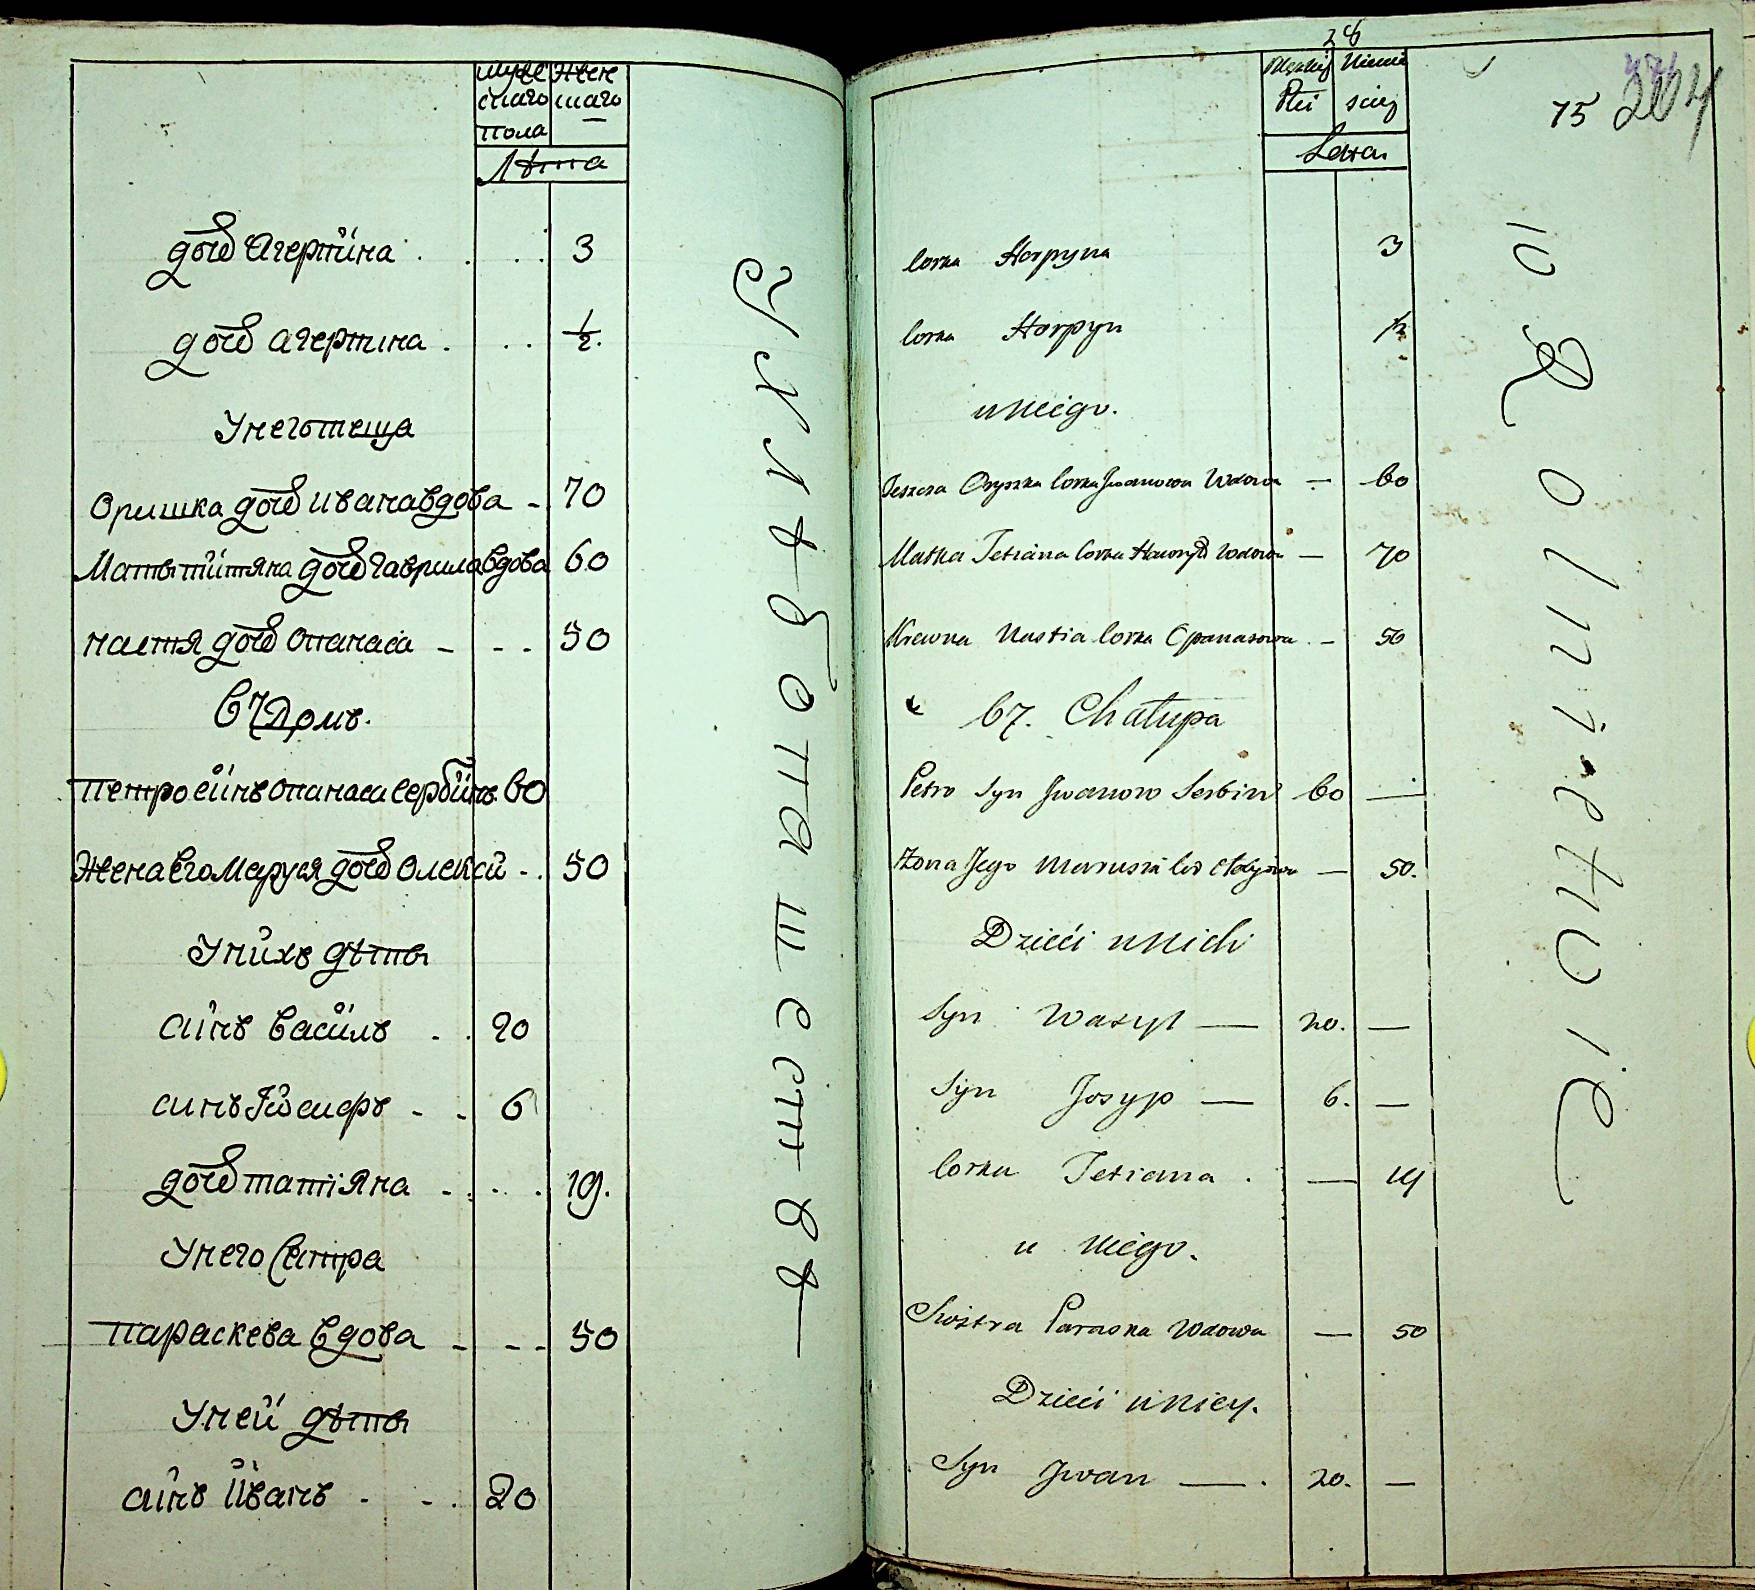 мужескаго пола
женскаго
Лѣта
дочь Агерпина 3
дочь агерпина 1/2
Унего теща
Оришка дочь ивана вдова - 70
Мать тітяна дочь гаврила вдова 60
настя дочь опанаса - - - 50
67 Домъ.
петро сїнъ опанаса сербїнъ 60
Жена его Маруся дочь Олексій - . 50
Унйхъ дѣты
сінъ василь 20
синъ 6
дочь татіяна - 19.
Унего сестра
параскева вдова - - - 50
Уней дѣты
сінъ Иванъ - - . 20
28
Męzkiej Płci
Lata.
75
204
Corka Horpyna 3
Corka Horpyn 1/2
u niego.
Teszcza Oryszka Corka Jwanowa Wdowa — 60
Matka Tetiana Corka Wdowa — 70
Krewna Nastia Corka Opanasowa - 50
67. Chałupa
Petro Syn Jwanow Serbin 60 —
Żona Jego Marusia — 50.
Dzieci u nich
Syn Wasyl — 20. —
Syn Josyp — 6. —
Corka Tetiana . — 19
u niego.
Siostra Paraska Wdowa — 50
Dzieci u niey.
Syn Jwan — . 20. —